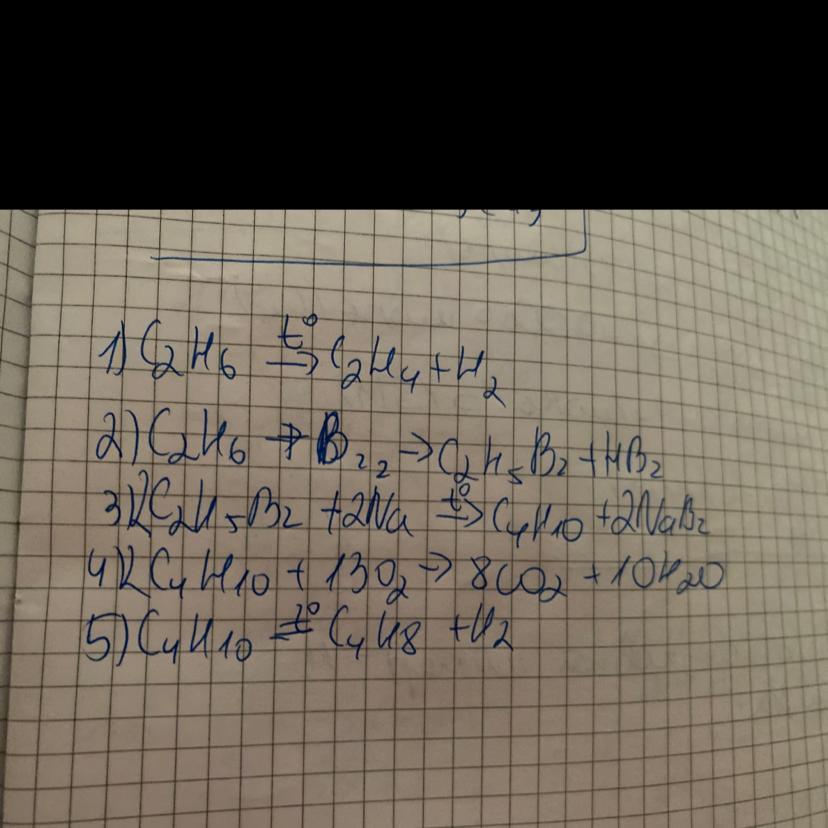 1) C2H6 t°→ C2H4 + H2
2) C2H6 + Br2 → C2H5Br + HBr
3) 2C2H5Br + 2Na t°→ C4H10 + 2NaBr
4) 2C4H10 + 13O2 → 8CO2 + 10H2O
5) C4H10 t°→ C4H8 + H2